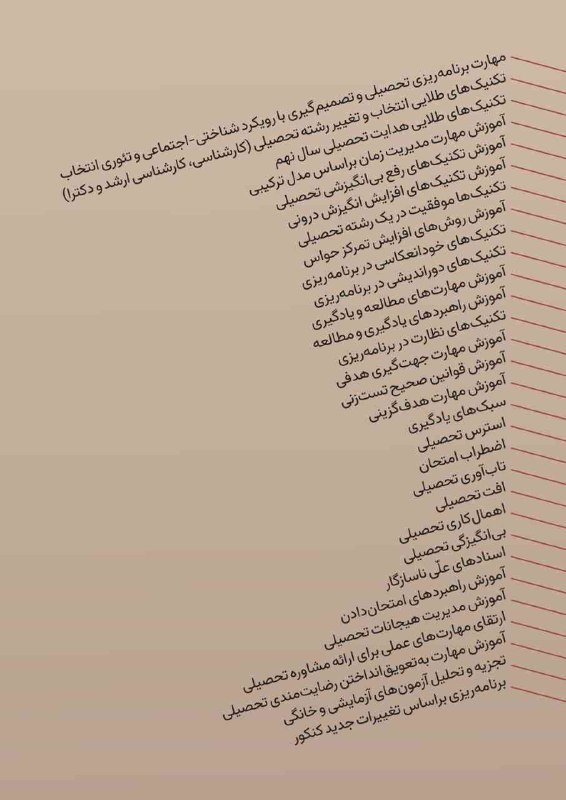 مهارت برنامه‌ریزی تحصیلی و تصمیم‌گیری با رویکرد شناختی-اجتماعی و تئوری انتخاب
تکنیک‌های طلایی انتخاب و تغییر رشته تحصیلی (کارشناسی، کارشناسی ارشد و دکترا)
تکنیک‌های طلایی هدایت تحصیلی سال نهم
آموزش مهارت مدیریت زمان براساس مدل ترکیبی
آموزش تکنیک‌های رفع بی‌انگیزشی تحصیلی
آموزش تکنیک‌های افزایش انگیزش درونی
تکنیک‌ها موفقیت در یک رشته تحصیلی
آموزش روش‌های افزایش تمرکز حواس
تکنیک‌های خودانعکاسی در برنامه‌ریزی
تکنیک‌های دوراندیشی در برنامه‌ریزی
آموزش مهارت‌های مطالعه و یادگیری
آموزش راهبردهای یادگیری و مطالعه
تکنیک‌های نظارت در برنامه‌ریزی
آموزش مهارت جهت‌گیری هدفی
آموزش قوانین صحیح تست‌زنی
آموزش مهارت هدف‌گزینی
سبک‌های یادگیری
استرس تحصیلی
اضطراب امتحان
تاب‌آوری تحصیلی
افت تحصیلی
اهمال‌کاری تحصیلی
بی‌انگیزگی تحصیلی
اسنادهای علّی ناسازگار
آموزش راهبردهای امتحان‌دادن
آموزش مدیریت هیجانات تحصیلی
ارتقای مهارت‌های عملی برای ارائه مشاوره تحصیلی
آموزش مهارت به‌تعویق‌انداختن رضایت‌مندی تحصیلی
تجزیه و تحلیل آزمون‌های آزمایشی و خانگی
برنامه‌ریزی براساس تغییرات جدید کنکور